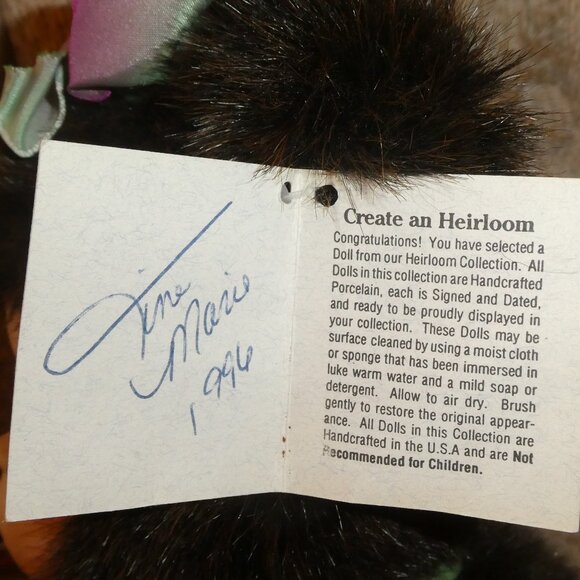 Tine
Marie
1996
Create an Heirloom
Congratulations! You have selected a
Doll from our Heirloom Collection. All
Dolls in this collection are Handcrafted
Porcelain, each is Signed and Dated,
and ready to be proudly displayed in
your collection. These Dolls may be
surface cleaned by using a moist cloth
or sponge that has been immersed in
luke warm water and a mild soap or
detergent. Allow to air dry. Brush
gently to restore the original appear-
ance. All Dolls in this Collection are
Handcrafted in the U.S.A and are Not
Recommended for Children.